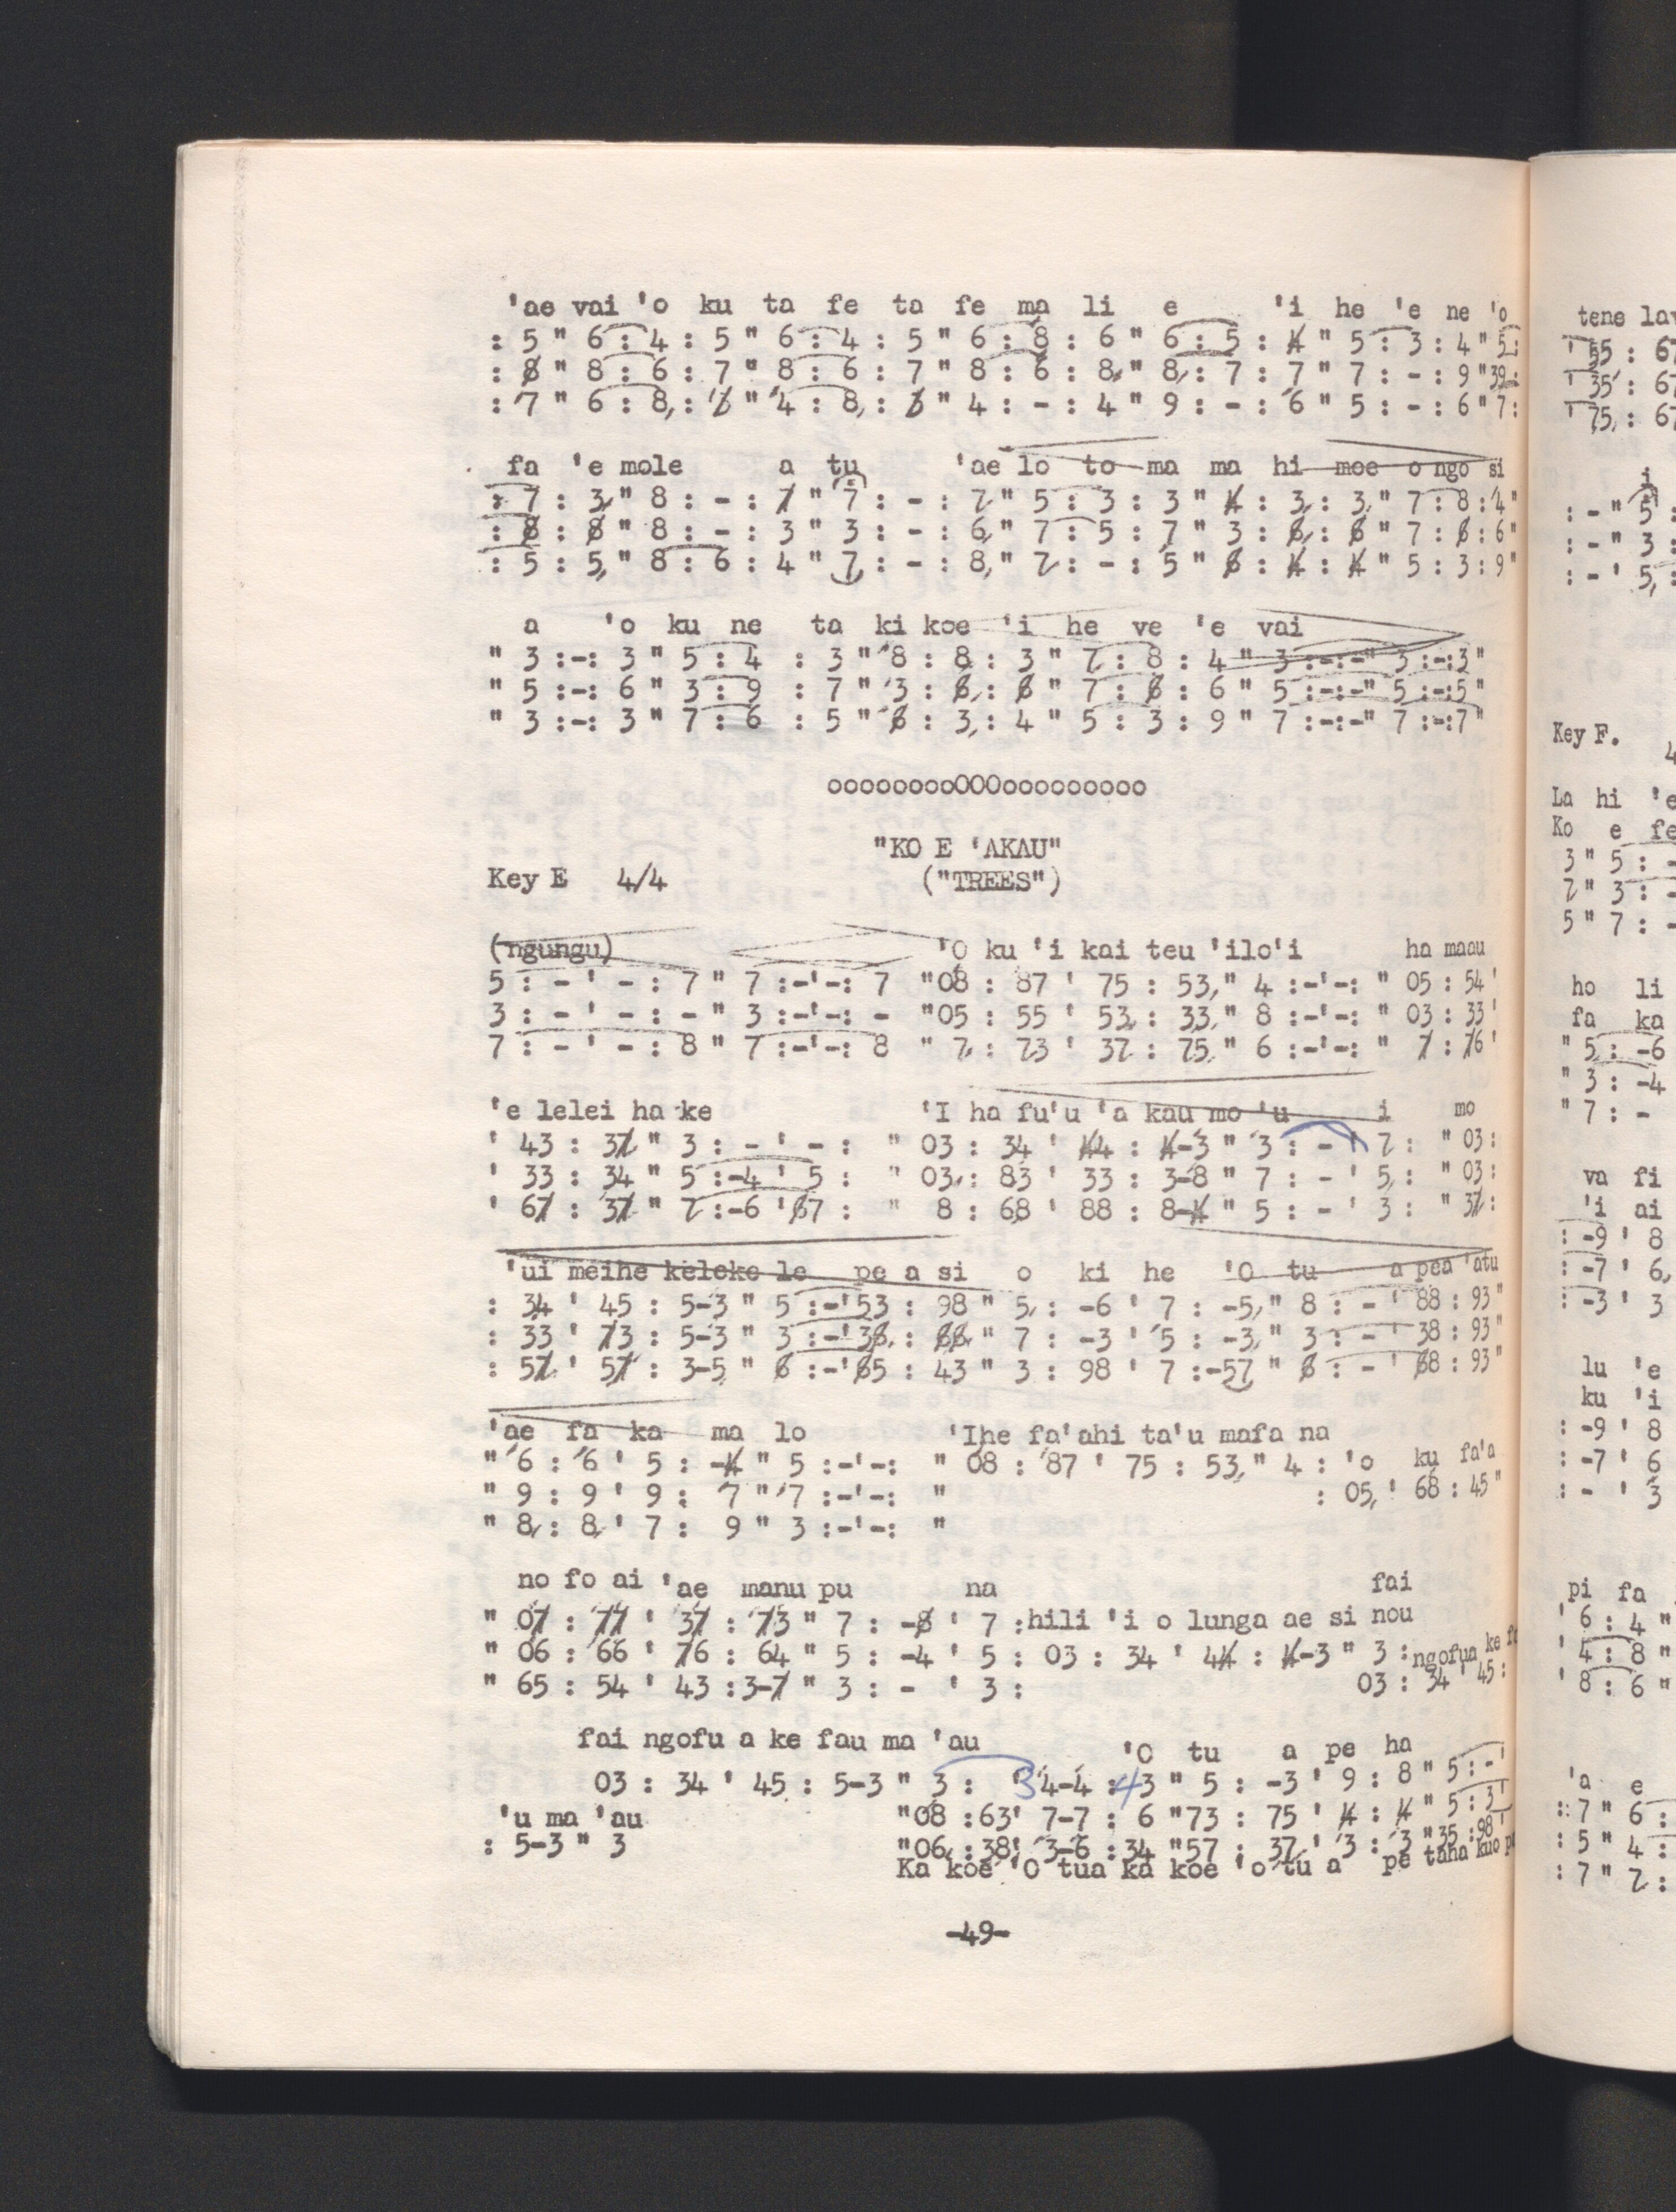 'ae vai 'o ku ta fe ta fe ma li e 'i he 'e ne 'o
: 5 " 6 : 4 : 5 " 6 : 4 : 5 " 6 : 8 : 6 " 6 : 5 : 4 " 5 : 3 : 4 " 5 :
: 8 " 8 : 6 : 7 " 8 : 6 : 7 " 8 : 6 : 8, " 8, : 7 : 7 " 7 : - : 9 " 39
: 7 " 6 : 8, : " 4 : 8, : " 4 : - : 4 " 9 : - : 6 " 5 : - : 6 " 7 :
fa 'e mole a tu 'ae lo to ma ma hi moe o ngo si
: 7 : 3, " 8 : - : 7 " 7 : - : 7, " 5 : 3 : 3 " 4 : 3, : 3, " 7 : 8 : 4 "
: 8 : 8 " 8 : - : 3 " 3 : - : 6, " 7 : 5 : 7 " 3 : 8, : 8 " 7 : 8 : 6 "
: 5 : 5, " 8 : 6 : 4 " 7, : - : 8, " 7, : - : 5 " 8 : 4 : 4 " 5 : 3 : 9 "
a 'o ku ne ta ki koe 'i he ve 'e vai
" 3 :-: 3 " 5 : 4 : 3 " 8 : 8 : 3 " 7, : 8 : 4 " 3 :-:-" 3 :-:3 "
" 5 :-: 6 " 3 : 9 : 7 " 3 : 8, : 8 " 7 : 8 : 6 " 5 :-:-" 5 :-:5 "
" 3 :-: 3 " 7 : 6 : 5 " 8 : 3, : 4 " 5 : 3 : 9 " 7 :-:-" 7 :-:7 "
ooooooooOOOooooooooo
"KO E 'AKAU"
Key E 4/4 ("TREES")
(ngungu) 'O ku 'i kai teu 'ilo'i ha maau
5 : - ' - : 7 " 7 :-'-: 7 "08 : 87 ' 75 : 53, " 4 :-'-: " 05 : 54 '
3 : - ' - : - " 3 :-'-: - "05 : 55 ' 53, : 33, " 8 :-'-: " 03 : 33 '
7 : - ' - : 8 " 7 :-'-: 8 " 7, : 73 ' 37, : 75, " 6 :-'-: " 7 : 76 '
'e lelei ha ke 'I ha fu'u 'a kau mo 'u i mo
' 43 : 37 " 3 : - ' - : " 03 : 34 ' 44 : 4-3 " 3 : - ' 7, : " 03 :
' 33 : 34 " 5 :-4 ' 5 : " 03, : 83 ' 33 : 3-8 " 7 : - ' 5, : " 03 :
' 67 : 37 " 7, :-6 ' 87 : " 8 : 68 ' 88 : 8-4 " 5 : - ' 3 : " 37 :
'ui meihe keleke le pe a si o ki he 'O tu a pea 'atu
: 34 ' 45 : 5-3 " 5 :-'53 : 98 " 5, : -6 ' 7 : -5, " 8 : - ' 88 : 93 "
: 33 ' 73 : 5-3 " 3 :-'38, : 88, " 7 : -3 ' 5 : -3, " 3 : - ' 38 : 93 "
: 57, ' 57 : 3-5, " 8 :-'85 : 43 " 3 : 98 ' 7 :-57 " 8 : - ' 88 : 93 "
'ae fa ka ma lo 'Ihe fa'ahi ta'u mafa na
" 6 : 6 ' 5 : -4 " 5 :-'-: " 08 : 87 ' 75 : 53, " 4 : 'o ku fa'a
" 9 : 9 ' 9 : 7 " 7 :-'-: " : 05, ' 68 : 45 "
" 8, : 8, ' 7 : 9 " 3 :-'-: "
no fo ai 'ae manu pu na fai
" 07 : 77 ' 37 : 73 " 7 : -8 ' 7 :hili 'i o lunga ae si nou
" 06 : 66 ' 76 : 64 " 5 : -4 ' 5 : 03 : 34 ' 44 : 4-3 " 3 : ngofua ke
" 65 : 54 ' 43 :3-7 " 3 : - ' 3 : 03 : 34 ' 45 :
fai ngofu a ke fau ma 'au 'O tu a pe ha
03 : 34 ' 45 : 5-3 " 3 : 3 4-4 : 43 " 5 : -3 ' 9 : 8 " 5 : - '
'u ma 'au "08 :63' 7-7 : 6 "73 : 75 ' 4 : 4 " 5 : 3
: 5-3 " 3 "06, :38' 3-6 :34 "57 : 37, ' 3 : 3 "35 :98
Ka koe 'O tua ka koe 'o tu a pe taha kuo
-49-
tene
' 55 : 67
' 35 : 67
' 75, : 67
i
: - " 5 :
: - " 3 :
: - ' 5, :
Key F. 4
La hi 'e
Ko e fe
3 " 5 : -
7, " 3 : -
5 " 7 : -
ho li
fa ka
" 5, : -6
" 3 : -4
" 7 : -
va fi
'i ai
: -9 ' 8
: -7 ' 6,
: -3 ' 3
lu 'e
ku 'i
: -9 ' 8
: -7 ' 6
: - ' 3
pi fa
' 6 : 4 "
' 4 : 8 "
' 8 : 6 "
'a e
: 7 " 6 :
: 5 " 4 :
: 7 " 7, :